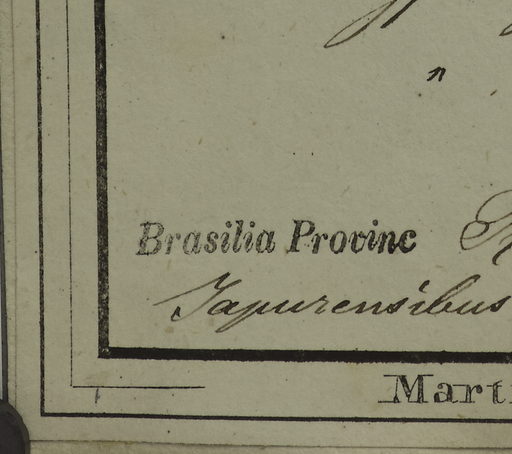 Brasilia Provinc
Japurensibus
Marti